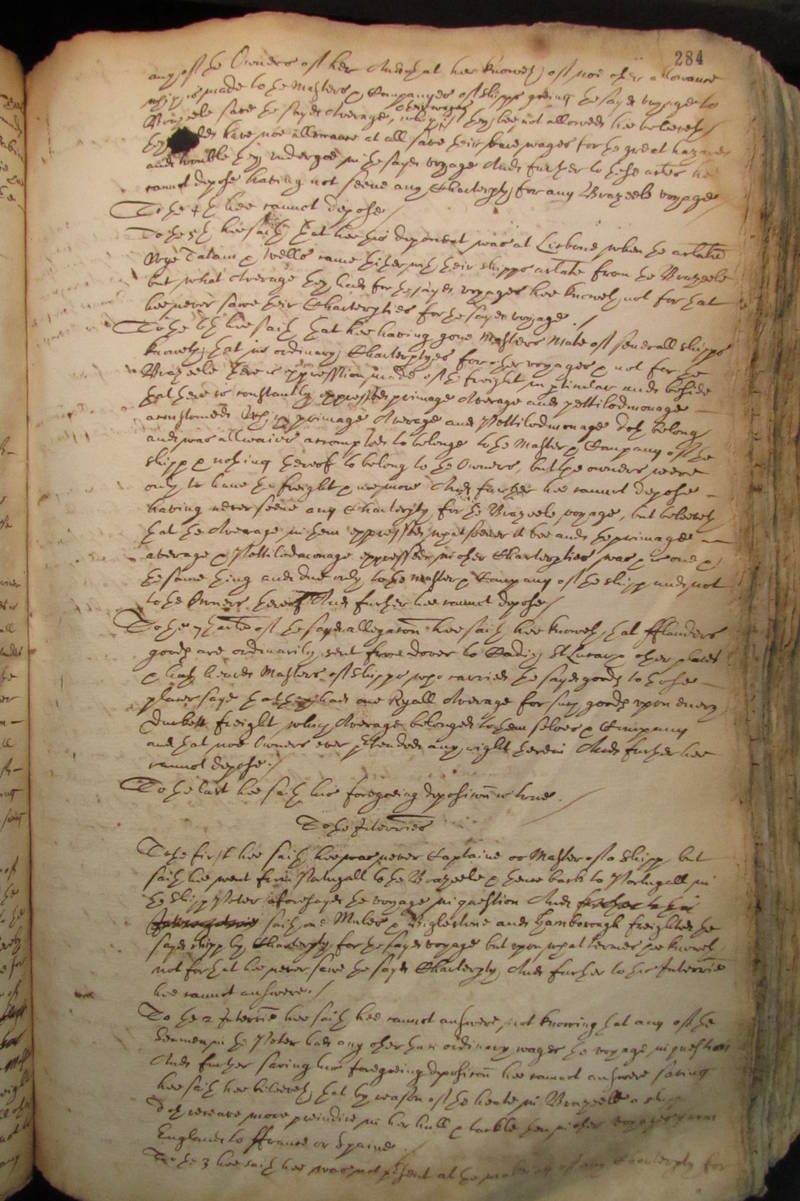 284
any of the Owners of her And that hee knoweth of noe other allowance
made to the Masters & Companyes of shipps goeing the sayd voyage to
Brazeele save the sayd Average, which if they bee not allowed hee beleeveth
they have noe allowance at all save their bare wages for the great hazard
and trouble they undergoe in the sayd voyage And further to these articles hee
cannot depose having not seene any Charterpty for any Brazeele voyage
To the 4th hee cannot depose
To the 5th hee saith that hee this deponent was at Lisbone when the arlate
Nye Tatam & Wells came thither with their shipps arlate from the Brazeele
but what Average they had for the sayd voyages hee knoweth not for that
hee never sawe their Charterpties for the sayd voyage
To the 6th hee saith that hee having gone Masters Mate of severall shipps
knoweth that in ordinary Charterptyes for other voyages & not for the
Brazeele there is expression made of the freight in pticular and beside
that there is constantly expressed primage Average and pettilodmonage
accustomed which primage Average and Pettilodmonage doth belong
and was allwaies accompted to belonge to the Master & Company of the
shipp & nothing thereof to belong to the Owners, but the owners were
only to have the freight & noe more And further hee cannot depose
having never seene any Charterpty for the Brazeele voyage, but beleeveth
that the Average in them expressed whatsoever it bee and the primage
average & Pettilodmonage expressed in other Charterpties was & is one &
the same thing and due only to the Master & Company of the shipp and not
to the Owners thereof And further hee cannot depose
To the 7th of the sayd allegation hee saith hee knoweth that fflanders
goods are ordinarily sent from dover to Cadiz St Lucar & other places
& hath heard Masters of shipps who carried the sayd goods to those
places saye that they had one Ryall Average for such goods upon every
Duckett freight, which Average belonged to them selves & Company
and that noe Owners ever ptended any right therein And further hee
cannot depose
To the last hee saith his foregoeing deposicon is true
To the Interries
To the first hee saith hee was never Captaine or Master of a shipp but
saith hee went from Portugall to the Brazeele & thence back to Portugall in
the shipp Peter aforesayd the voyage in question And further to this
Interrogatorie saith one and Hamborough freighted the
sayd shipp by Charterpty for the sayd voyage but upon what termes hee knoweth
not for that hee never sawe the sayd Charterpty And further to this Interrie
hee cannot answere
To the 2 Interrie hee saith hee cannot answere, not knowing that any of the
Seamen in the Peter had any other than ordinary wages the voyage in question
And further saving his foregoeing deposicon hee cannot answere saving
hee saith hee beleeveth that by reason of the heate in Brazeele a shipp
doth receave more prejudice in her hull & tackle then in other voyages from
England to ffrance or Spaine
To the 3 hee saith hee was not present at the making of any Charterpty for